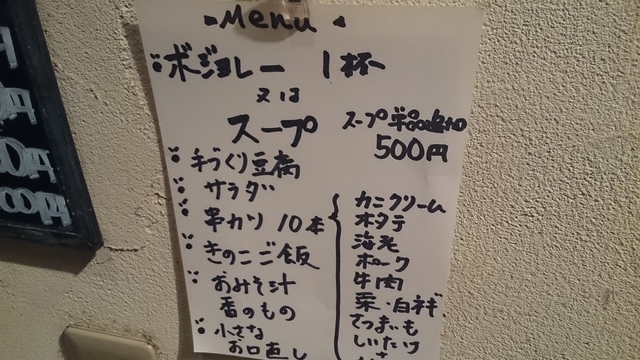 Menu
ボジョレー 1杯
又は
スープ
スープ単品追加
500円
手づくり豆腐
サラダ
串カツ 10本
きのこご飯
おみそ汁
香のもの
小さな
お口直し
カニクリーム
ホタテ
海老
ポーク
牛肉
栗・白ネギ
さつまいも
しいたけ
円
00円